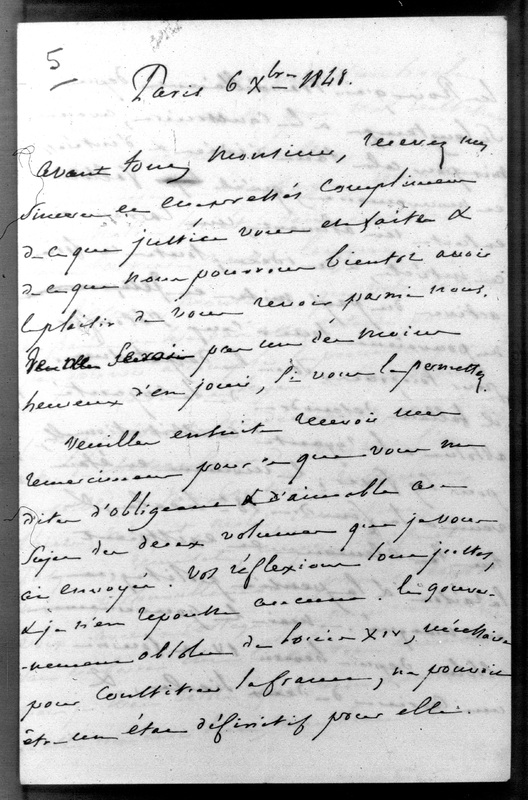 5
Paris 6 Xbre 1848.
Avant tout, Monsieur, recevez mes
sincères et empressés complimens
de ce que justice vous est faite &
de ce que nous pourrons bientôt avoir
le plaisir de vous revoir parmi nous.
je ne serai pas un des moins
heureux d'en jouir, si vous le permettez.
Veuillez ensuite recevoir mes
remercimens pour ce que vous me
dites d'obligeant & d'aimable au
sujet des deux volumes que je vous
ai envoyés. Vos réflexions sont justes,
& je n'en repousse aucune. le gouver-
-nement absolu de Louis XIV, nécessaire
pour constituer la france, ne pouvoit
être un état définitif pour elle.